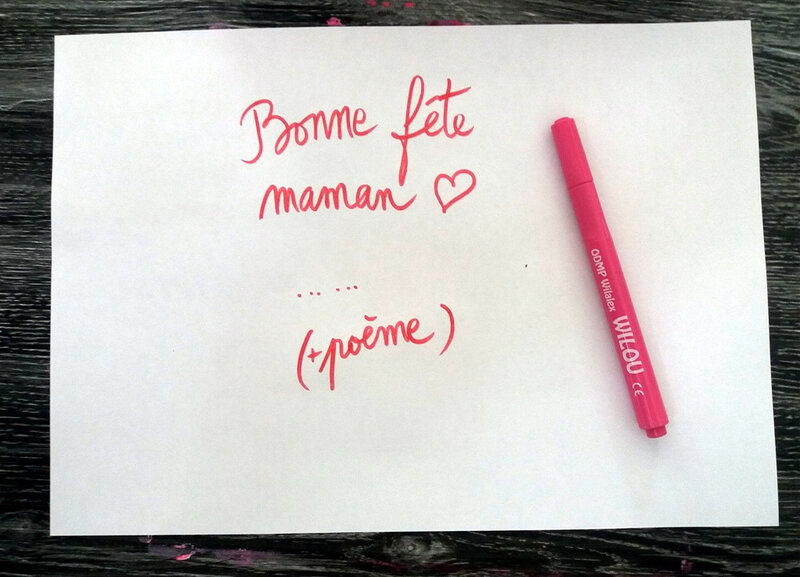 Bonne fête
maman ♡
... ...
(+poème)
ODMP Wilalex
WILOU CE